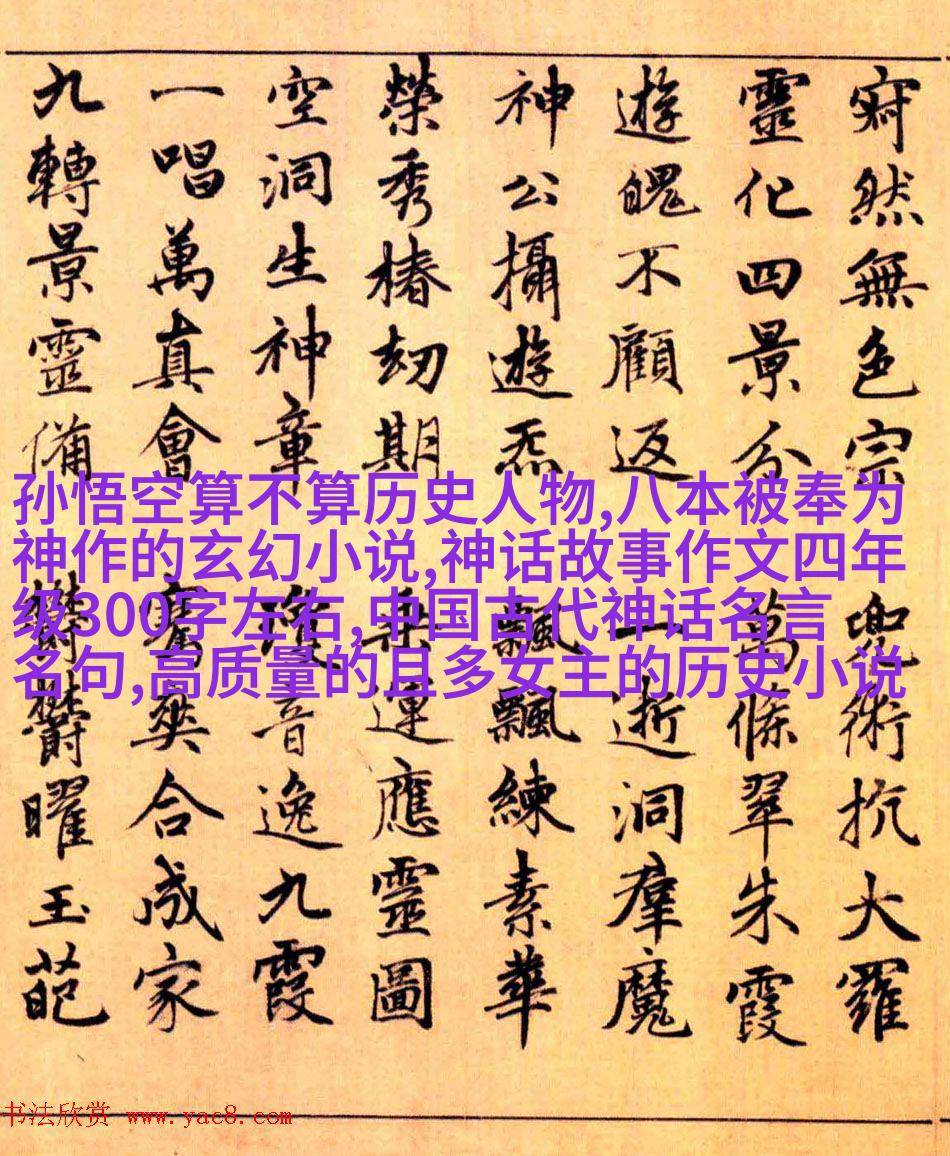 寂然無色宗
兜術抗大羅
靈化四景分
萬條翠朱霞
遊魄不顧返
一逝洞羣魔
神公攝遊炁
飄飄練素華
榮秀椿刧期
乘運應靈圖
空洞生神章
瓊音逸九霞
一唱萬真會
騫爽合成家
九轉景靈備
鬱鬱曜玉葩
孙悟空算不算历史人物,八本被奉为
神作的玄幻小说,神话故事作文四年
级300字左右,中国古代神话名言
名句,高质量的且多女主的历史小说
书法欣赏 www.yac8.com